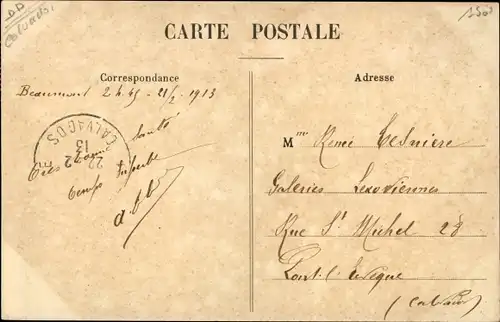 Calvados
1500
CARTE POSTALE
Correspondance
Adresse
Beaumont 2h45 - 21/2 - 1913
CALVADOS
22
13 2
Très bonne santé
temps superbe
Mme René Lesnière
Galeries Lexoviennes
Rue St Michel 28
Pont-l'Evêque
(Calvados)